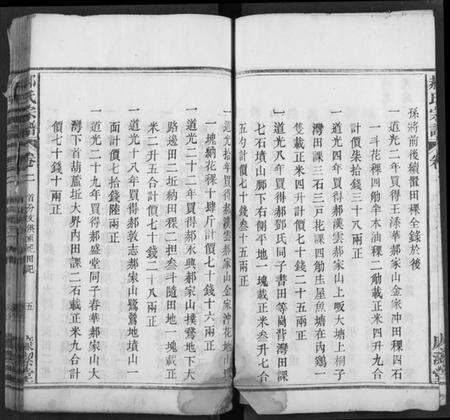 孫將前後續置田稞全錄於後
一道光二年買得王渌華郝家山金家冲田稞四石
一斗花稞四觔羊木油稞二觔載正米四升九合
計價柒拾錢三十八兩正
一道光四年買得郝漢雲郝家山上畈大塘上桐子
灣田課三石三戸花課四觔庄屋魚塘在內鷄一
隻載正米四升計價七十錢二十五兩正
一道光八年買得郝鄧氏同子書田等崗背灣田課
七石墳山脚下右側平地一塊載正米叁升七合
五勺計價七十錢叁十五兩正
一道光拾年買得郝漢雲郝家山金家冲花地
一塊納花稞十肆斤計價七十錢十六兩正
一道光二十一年買得郝永興郝家山撞鶯地下大
路邊田二坵納田稞二担叁斗隨田地一塊載正
米二升五合計價七十錢二十八兩正
一道光十八年買得郝敦志郝家山鶯鶯地墳山一
面計價七拾錢陸兩正
一道光二十九年買得郝盛堂同子春華郝家山大
灣下首葫蘆坵大界內田課二石載正米九合計
價七十錢十兩正
郝氏宗譜
卷二
五